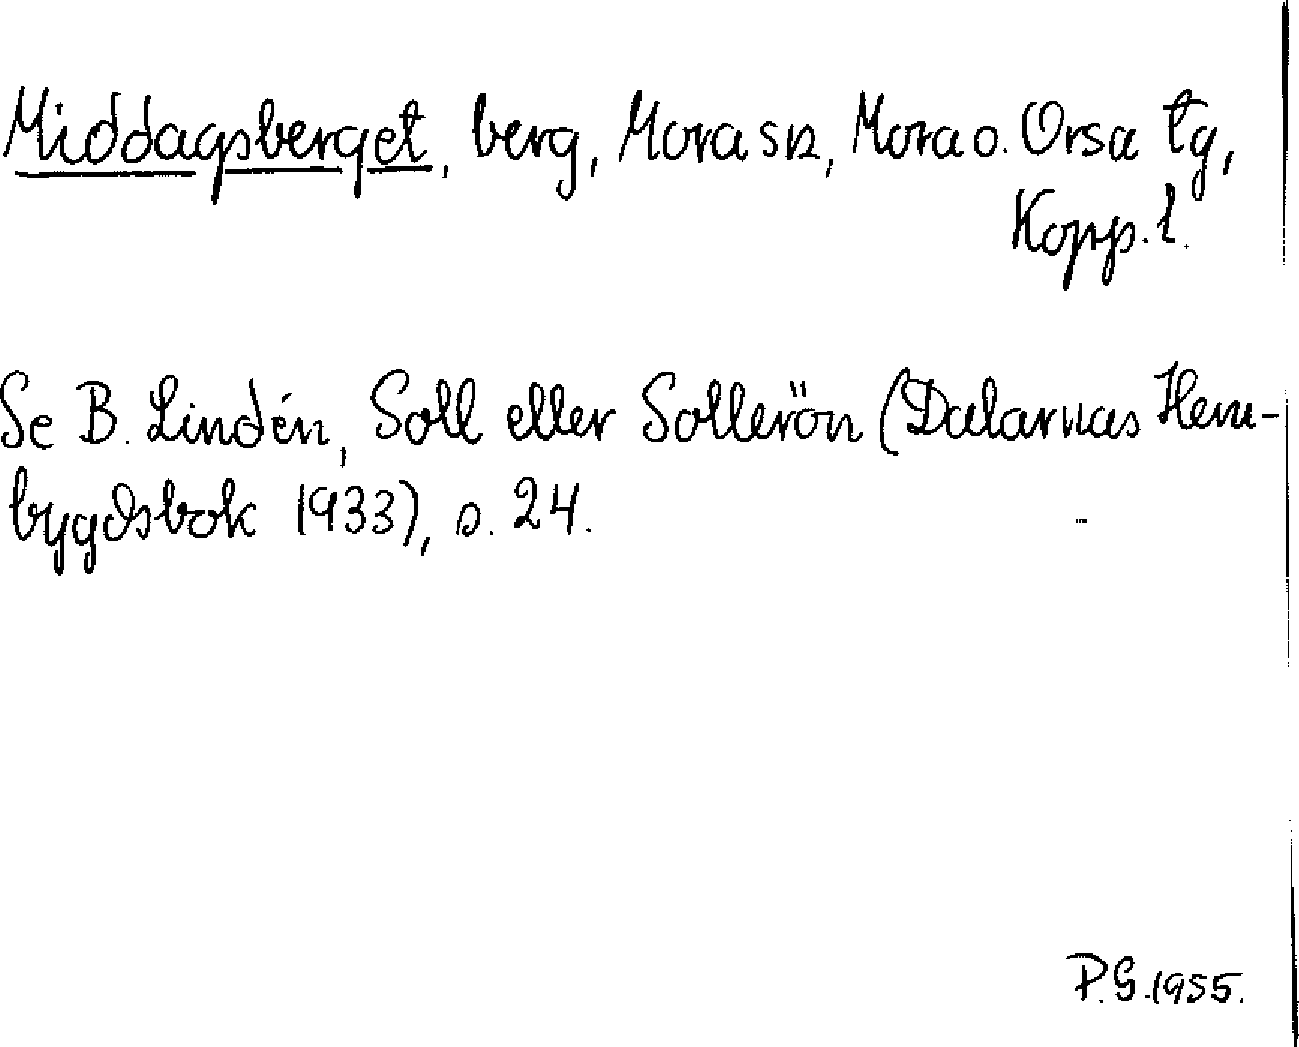 Middagsberget, berg, Mora sn, Mora o. Orsa tg,
Kopp. l.
Se B. Lindén, Soll eller Sollerön (Dalarnas Hem-
bygdsbok 1933), s. 24.
P.G. 1955.